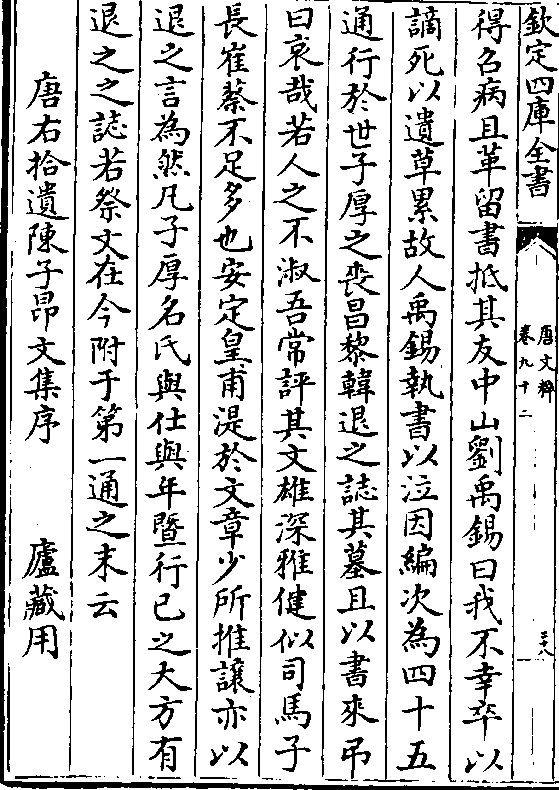 欽定四庫全書
唐文粹
卷九十二
三十八
得召病且革留書抵其友中山劉禹錫曰我不幸卒以
謫死以遺草累故人禹錫執書以泣因編次為四十五
通行於世子厚之喪昌黎韓退之誌其墓且以書來弔
曰哀哉若人之不淑吾常評其文雄深雅健似司馬子
長崔蔡不足多也安定皇甫湜於文章少所推讓亦以
退之言為然凡子厚名氏與仕與年暨行已之大方有
退之之誌若祭文在今附于第一通之末云
唐右拾遺陳子昂文集序 盧藏用